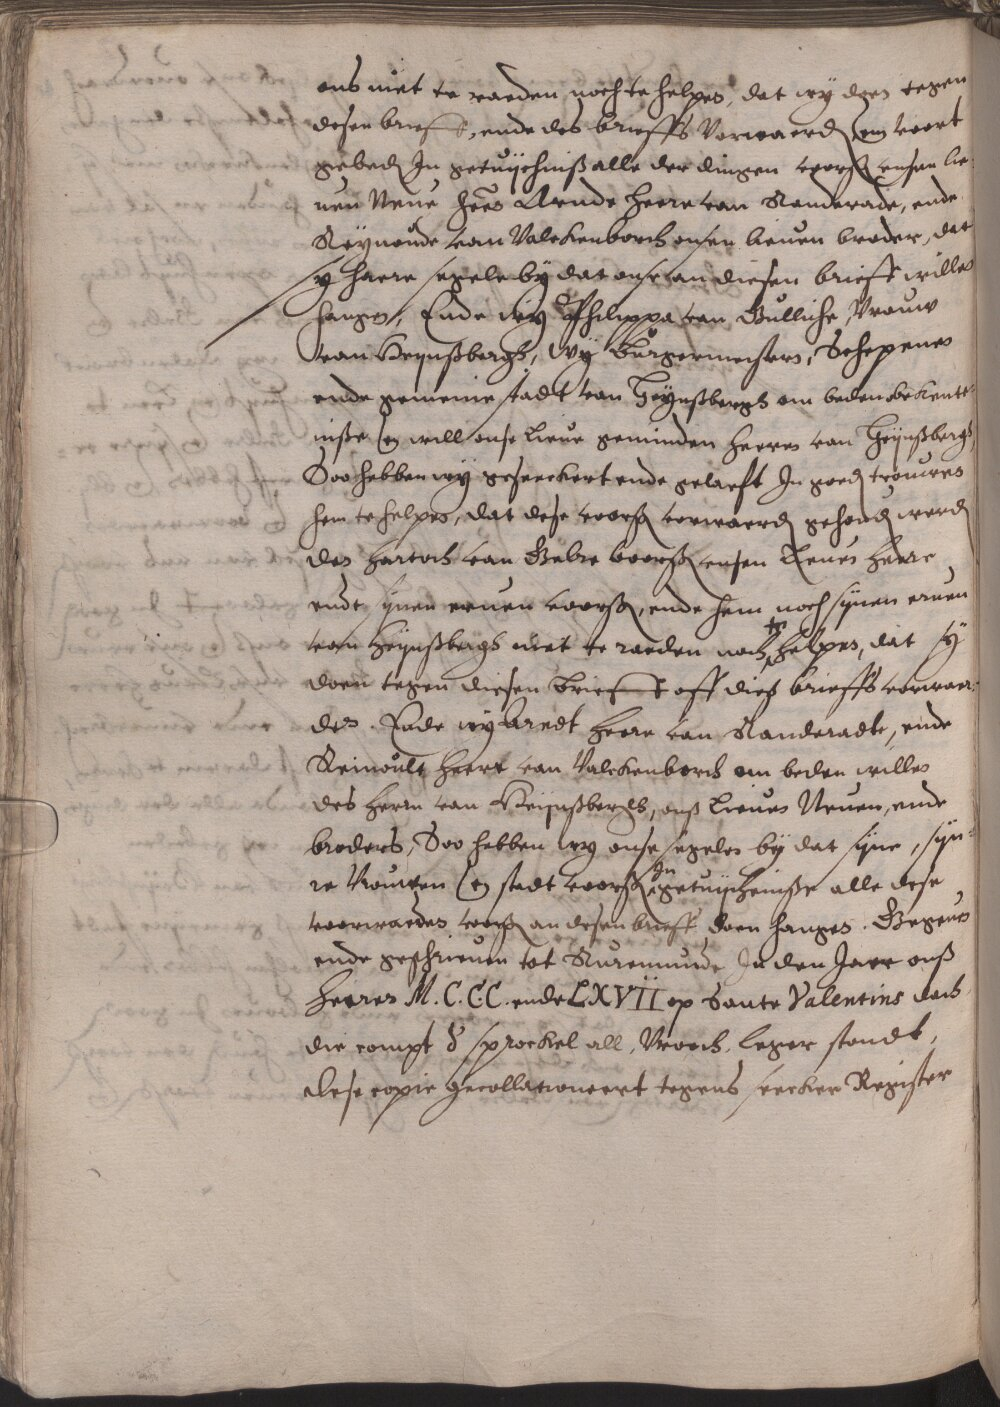 ons niet te raeden noch te helpen, dat wy doen tegen
desen brieff, ende des brieffs Vorwaerd en voert
gebed In getuijchniß alle der dingen voorß onsen lie-
uen Neue heer Arnde heere van Randerade, ende
Reynoude van Valckenborch onsen lieuen broder, dat
sy haere segele by dat onse an diesen brieff willen
hangen, Ende wy Philippa van Gulliche, Vrouw
van Heynßbergh, Wy Burgermeisters, Schepenen
ende gemeine stadt van Heynßbergh om beden bekente-
niße en will onse lieue geminden heeren van Heynßbergh,
Soo hebben wy geseeckert ende gelaeft In goed trouwen
hem te helpen, dat dese voorß vorwaerd gehoud werd
den hartoch van Gelre voorß onsen lieuen heere
ende synen eruen voorß, ende hem noch synen eruen
van Heynßbergh niet te raeden noch te helpen, dat sy
doen tegen diesen brieff off dieß brieffs vorwaer-
den. Ende wy Arndt heere van Randeradt, ende
Reinoult heere van Valckenborch om beden willen
des herrn van Heijnßbergh, onß lieuen Neuen, ende
broders, Soo hebben wy onse segelen by dat syne, syn-
re Vrouwen en stadt voorß In getuijcheniße alle dese
voorwarden voorß an desen brieff doen hangen. Gegeuen
ende geschrieuen tot Ruremunde In den Jaere onß
heeren M.C.C.C. ende LXVII op Sante Valentins dach
die compt ð sprockel all, Vroch. leger stondt,
dese copie gecollationeert tegens seecker Register